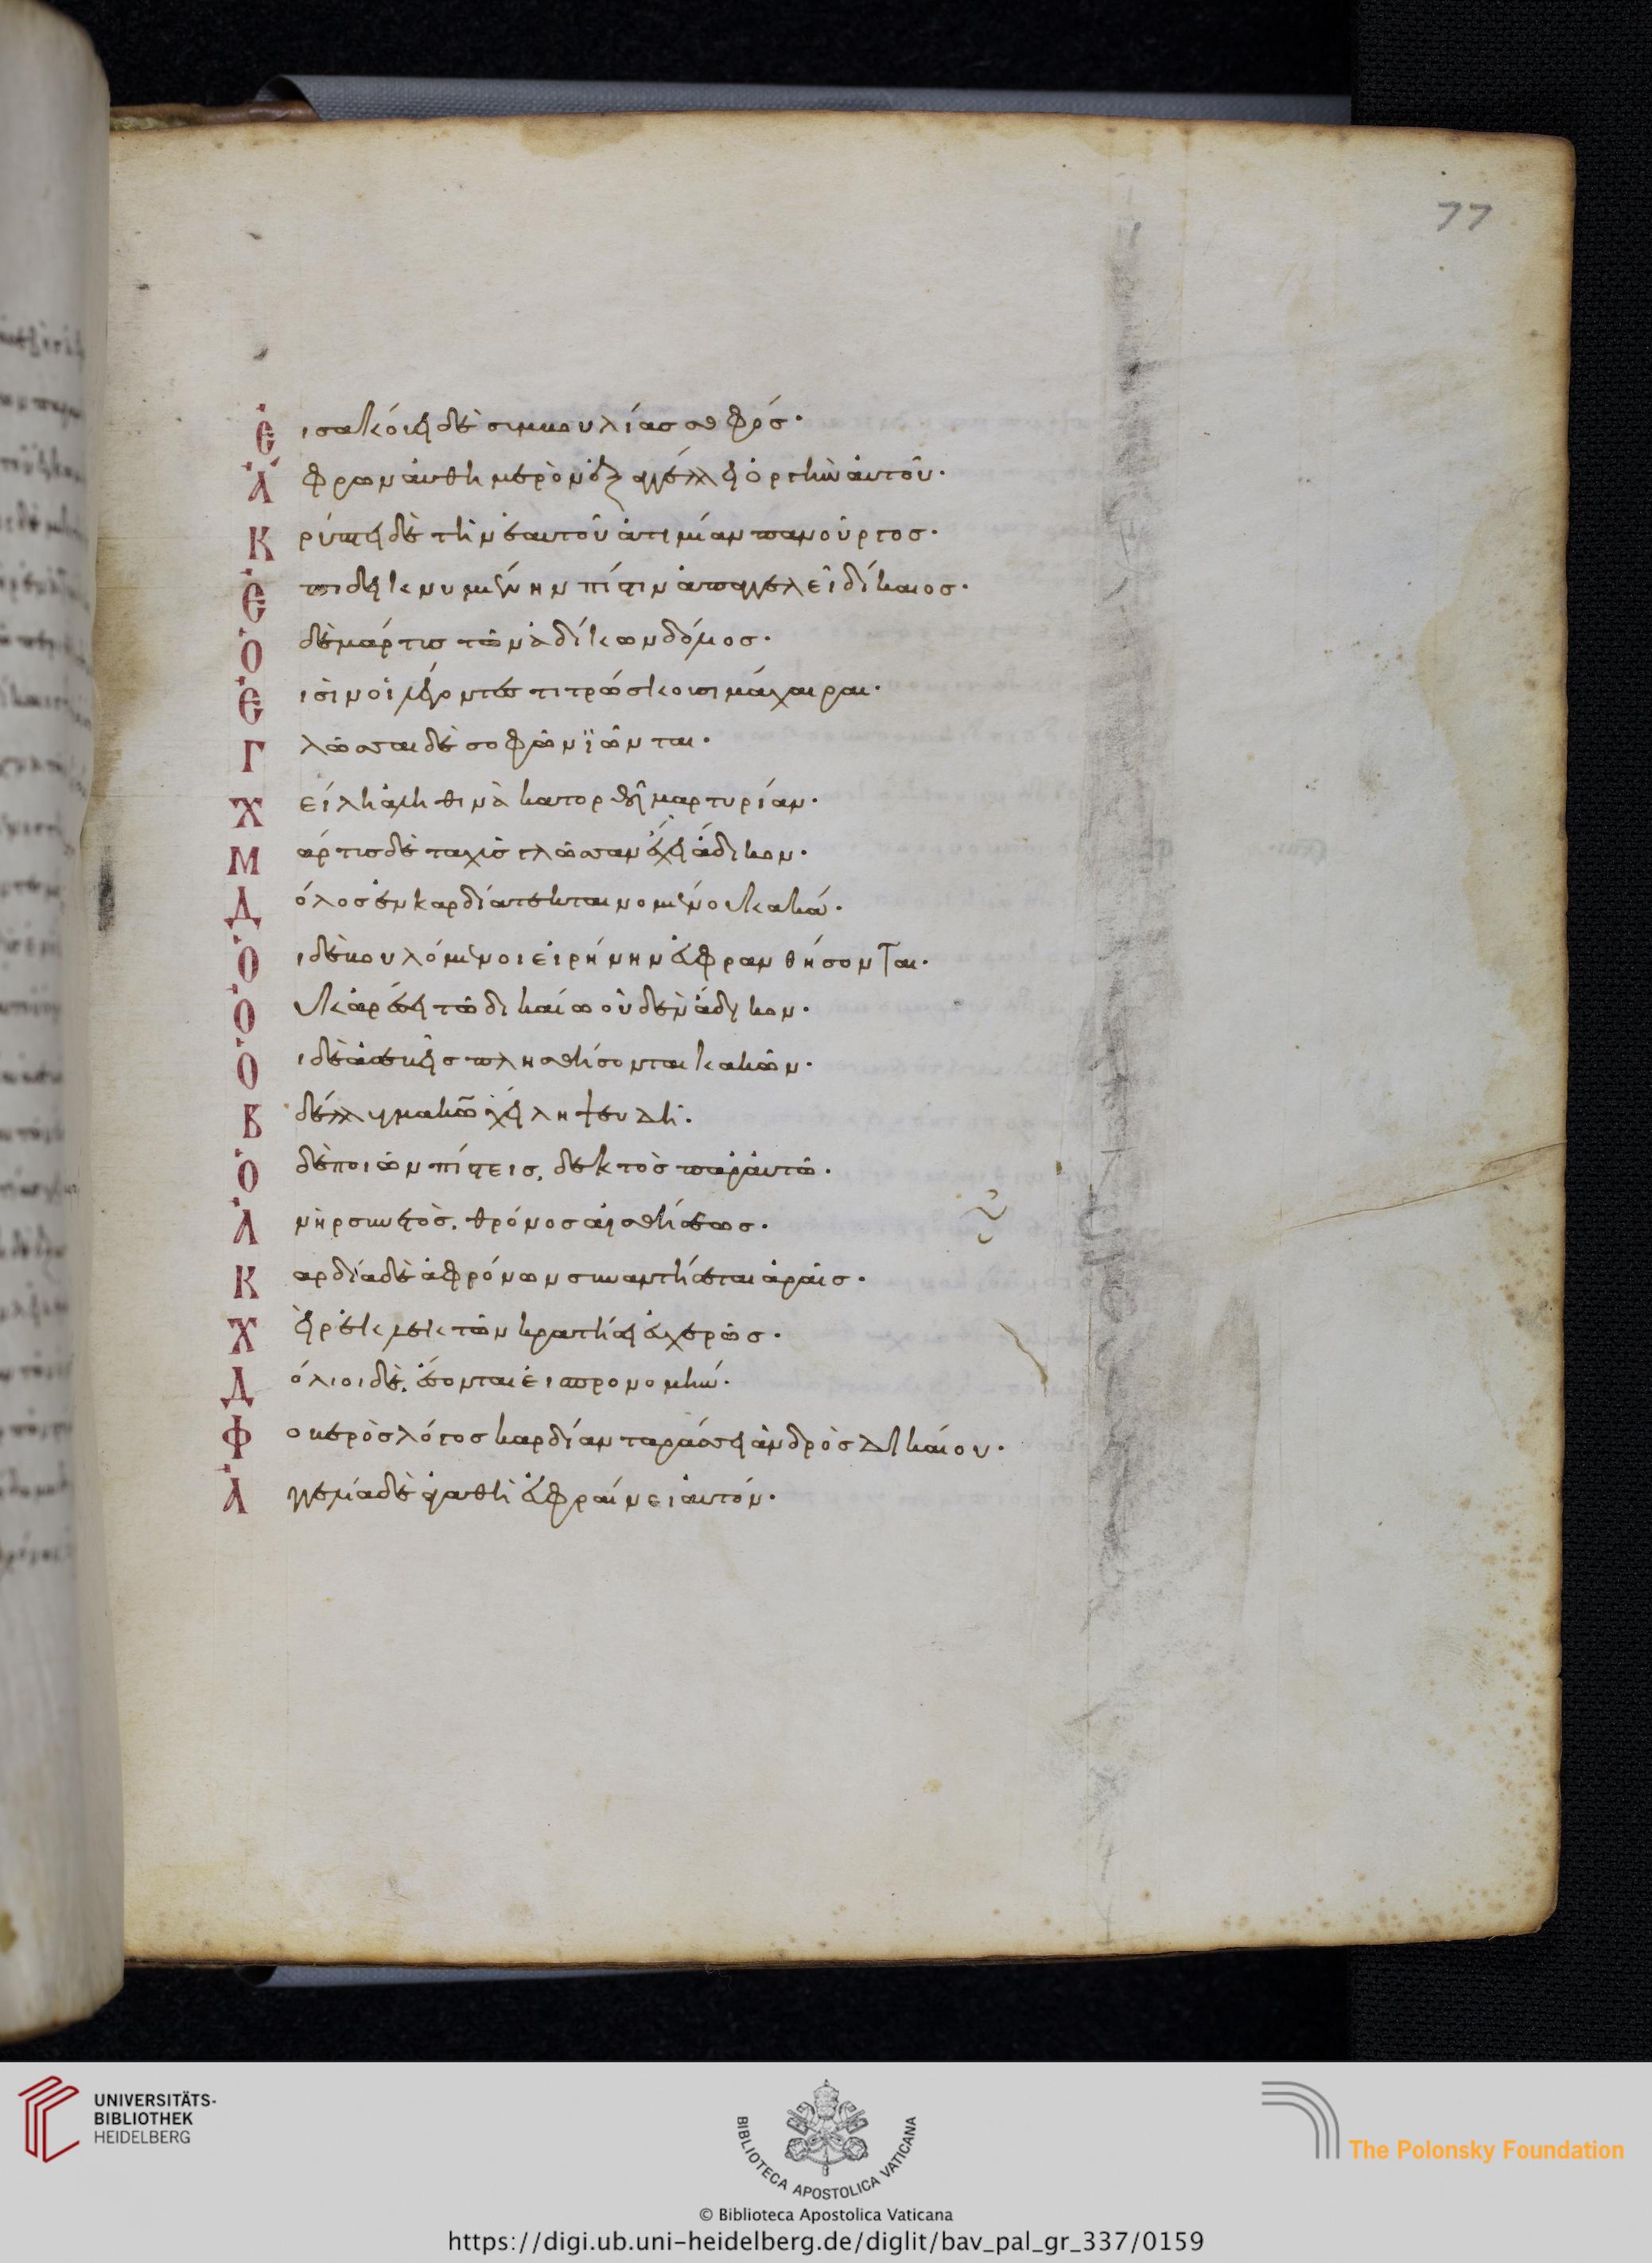 Εἰσακούει δὲ συμβουλίας σοφός·
Ἄφρων αὐθημερὸν ἐξαγγέλλει ὀργὴν αὐτοῦ·
Κρύπτει δὲ τὴν ἑαυτοῦ ἀτιμίαν πανοῦργος·
Ἐπιδεικνυμένην πίστιν ἀπαγγελεῖ δίκαιος·
Ὁ δὲ μάρτυς τῶν ἀδίκων δόλιος·
Εἰσὶν οἱ λέγοντες τιτρώσκουσι μάχαιραι·
Γλῶσσαι δὲ σοφῶν ϊῶνται·
Χείλη ἀληθινὰ κατορθοῖ μαρτυρίαν·
Μάρτυς δὲ ταχὺς γλῶσσαν ἔχει ἄδικον·
Δόλος ἐν καρδία τεκταινομένου κακά·
Οἱ δὲ βουλόμενοι εἰρήνην εὐφρανθήσονται·
Οὐκ ἀρέσει τῶ δικαίω οὐδὲν ἄδικον·
Οἱ δὲ ἀσεβεῖς πλησθήσονται κακῶν·
Βδέλλυγμα κω̅ χείλη ψευδῆ·
Ὁ δὲ ποιῶν πίστεις, δεκτὸς παρ' αὐτῶ·
Ἀνὴρ συνετὸς, θρόνος αἰσθήσεως·
Καρδία δὲ ἀφρόνων συναντήσεται ἀραῖς·
Χεὶρ ἐκλεκτῶν κρατήσει εὐχερῶς·
Δόλιοι δὲ, ἔσονται εἰς προνομήν·
Φοβερὸς λόγος καρδίαν ταράσσει ἀνδρὸς δικαίου·
Ἀγγελία δὲ ἀγαθὴ εὐφραίνει αὐτόν·
77
UNIVERSITÄTS-
BIBLIOTHEK
HEIDELBERG
BIBLIOTECA APOSTOLICA VATICANA
The Polonsky Foundation
© Biblioteca Apostolica Vaticana
https://digi.ub.uni-heidelberg.de/diglit/bav_pal_gr_337/0159